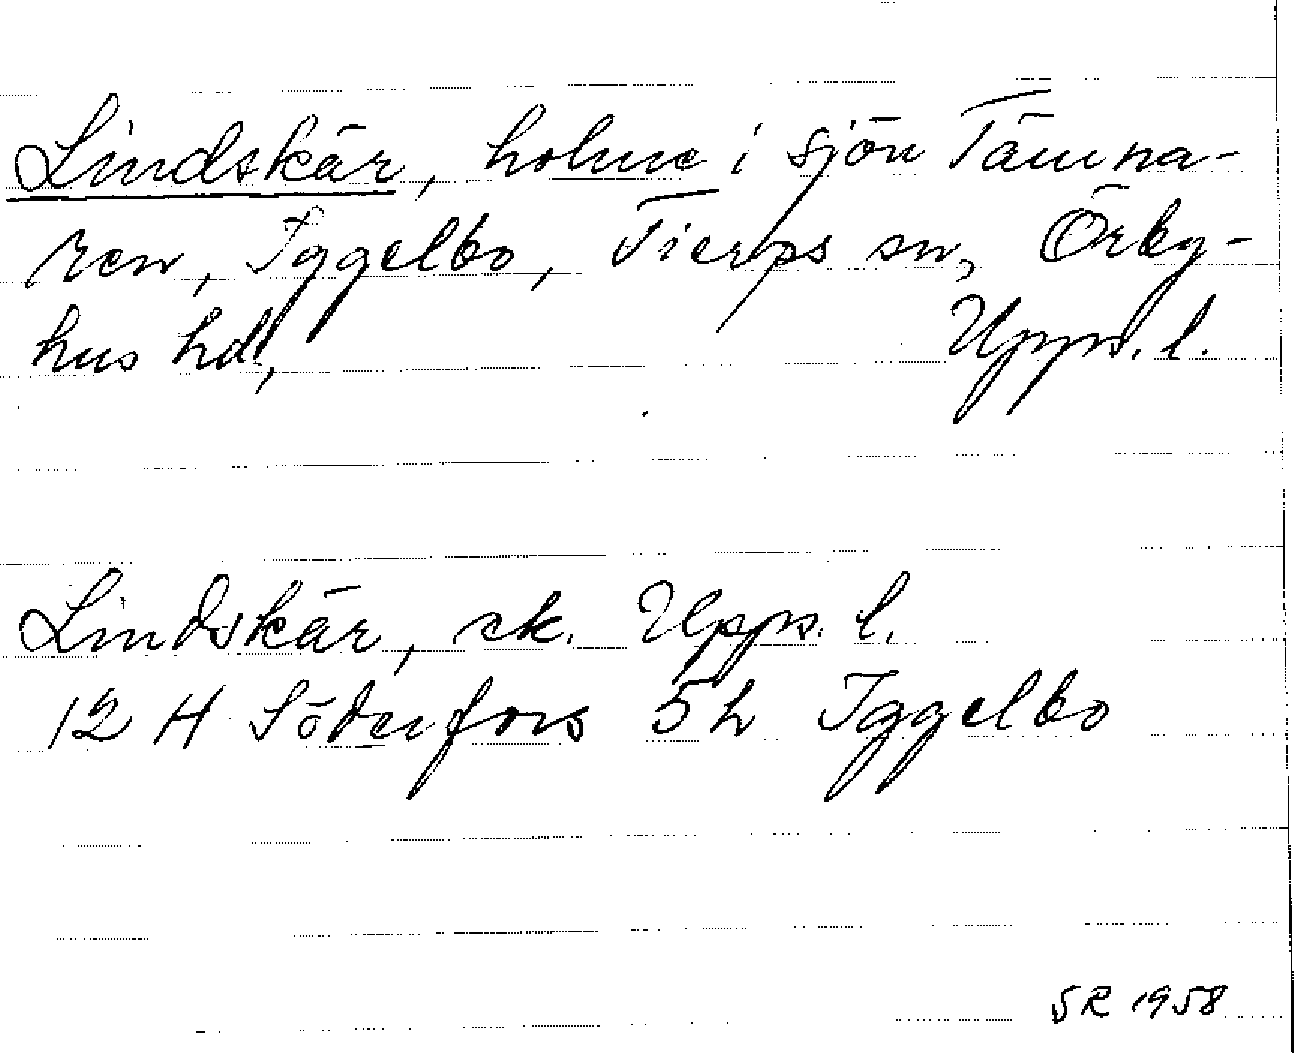 Lindskär, holme i sjön Tämna-
ren, Iggelbo, Tierps sn, Örby-
hus hd, Upps. l.
Lindskär, ek. Upps. l.
12 H Söderfors 5h Iggelbo
SR 1958